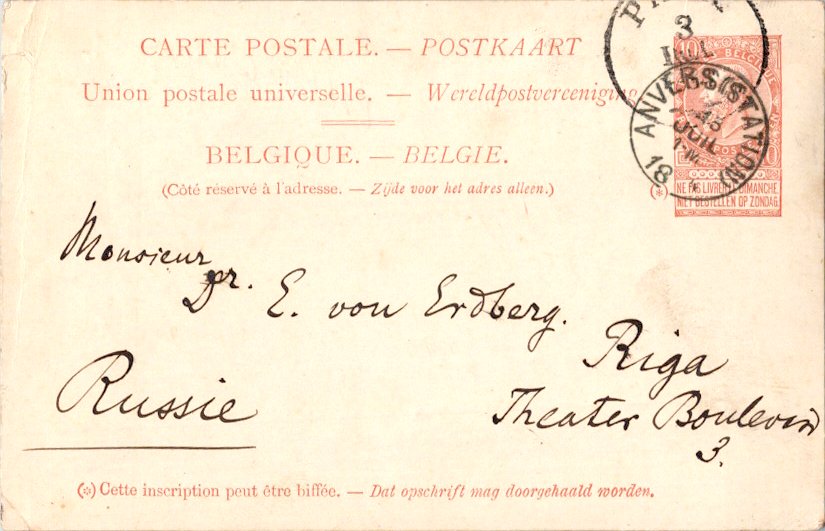 CARTE POSTALE. — POSTKAART
Union postale universelle. — Wereldpostvereeniging
BELGIQUE. — BELGIE.
(Côté réservé à l'adresse. — Zijde voor het adres alleen.)
(*)
10
NE PAS LIVRER LE DIMANCHE
NIET BESTELLEN OP ZONDAG
3
ІЮЛ
ANVERS (STATION)
15
JUIL
18
Monsieur
Dr. E. von Erdberg.
Riga
Russie
Theater Boulevard
3.
(*) Cette inscription peut être biffée. — Dat opschrift mag doorgehaald worden.